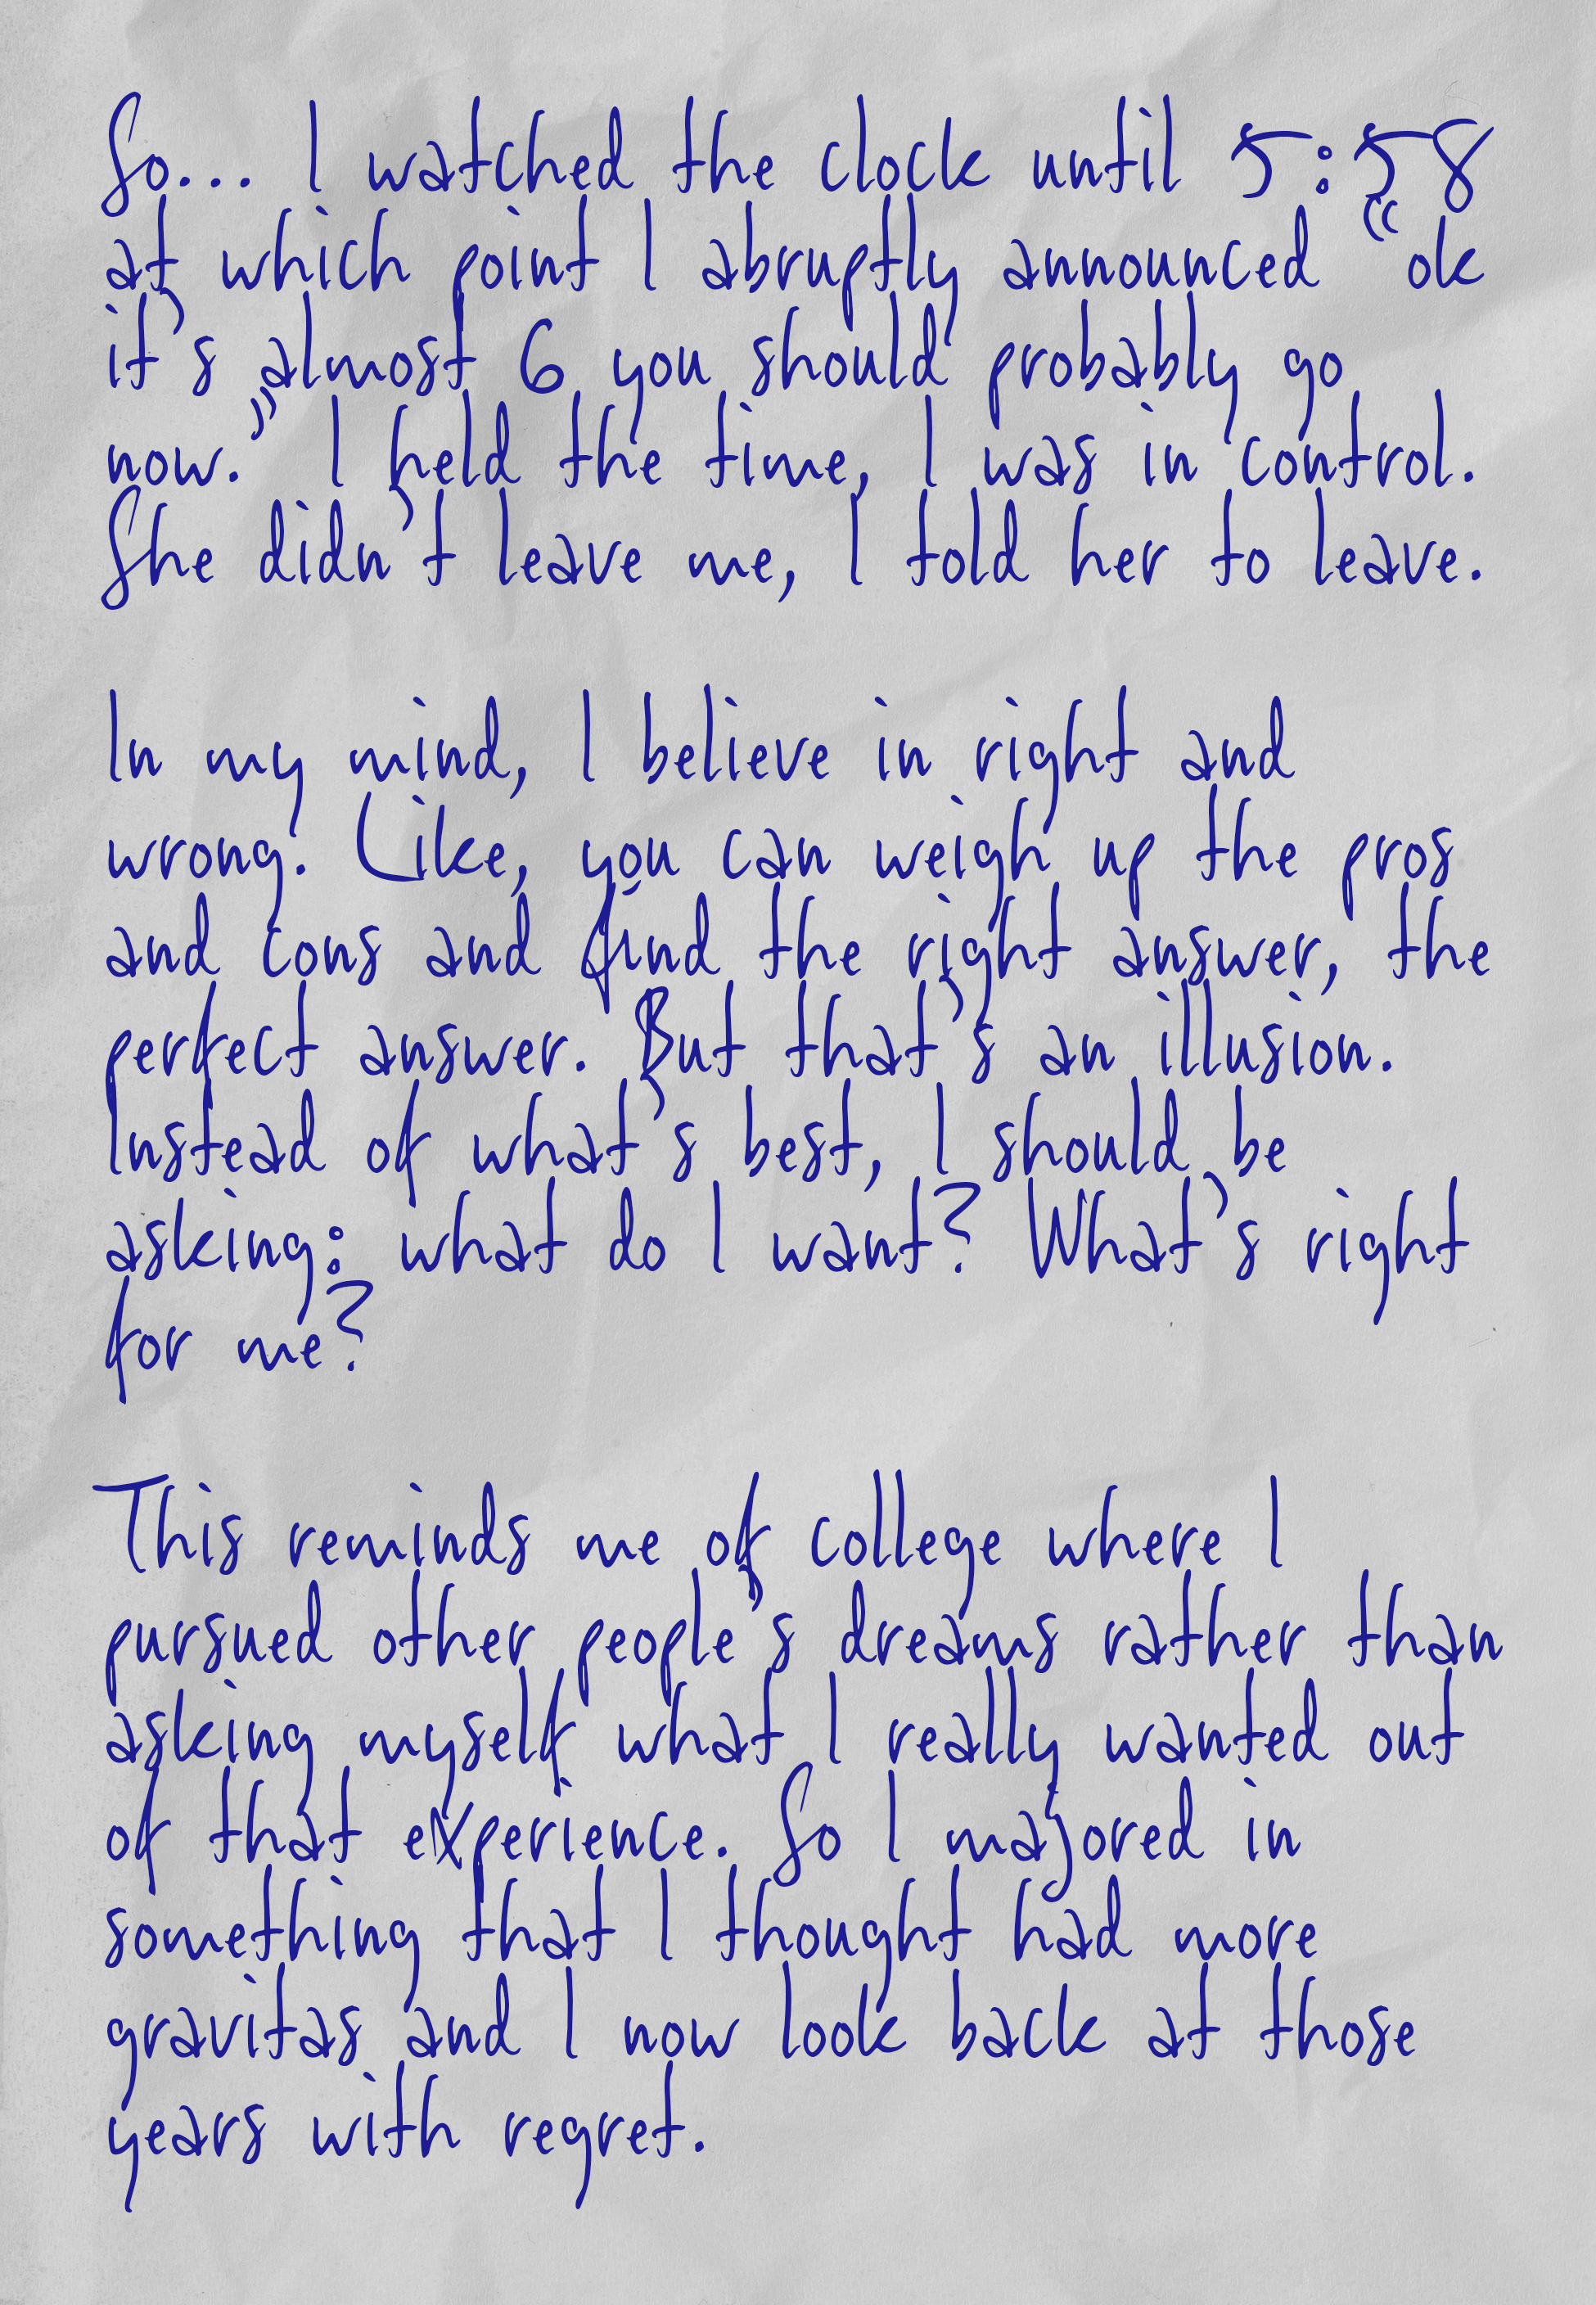 So... I watched the clock until 5:58
at which point I abruptly announced “ok
it’s almost 6 you should probably go
now.” I held the time, I was in control.
She didn’t leave me, I told her to leave.

In my mind, I believe in right and
wrong. Like, you can weigh up the pros
and cons and find the right answer, the
perfect answer. But that’s an illusion.
Instead of what’s best, I should be
asking: what do I want? What’s right
for me?

This reminds me of college where I
pursued other people’s dreams rather than
asking myself what I really wanted out
of that experience. So I majored in
something that I thought had more
gravitas and I now look back at those
years with regret.